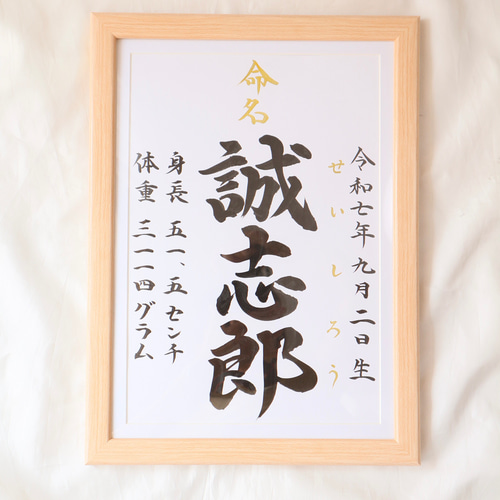 令和七年九月二日生
せいしろう
命名
誠志郎
身長 五一、五センチ
体重 三一一四グラム